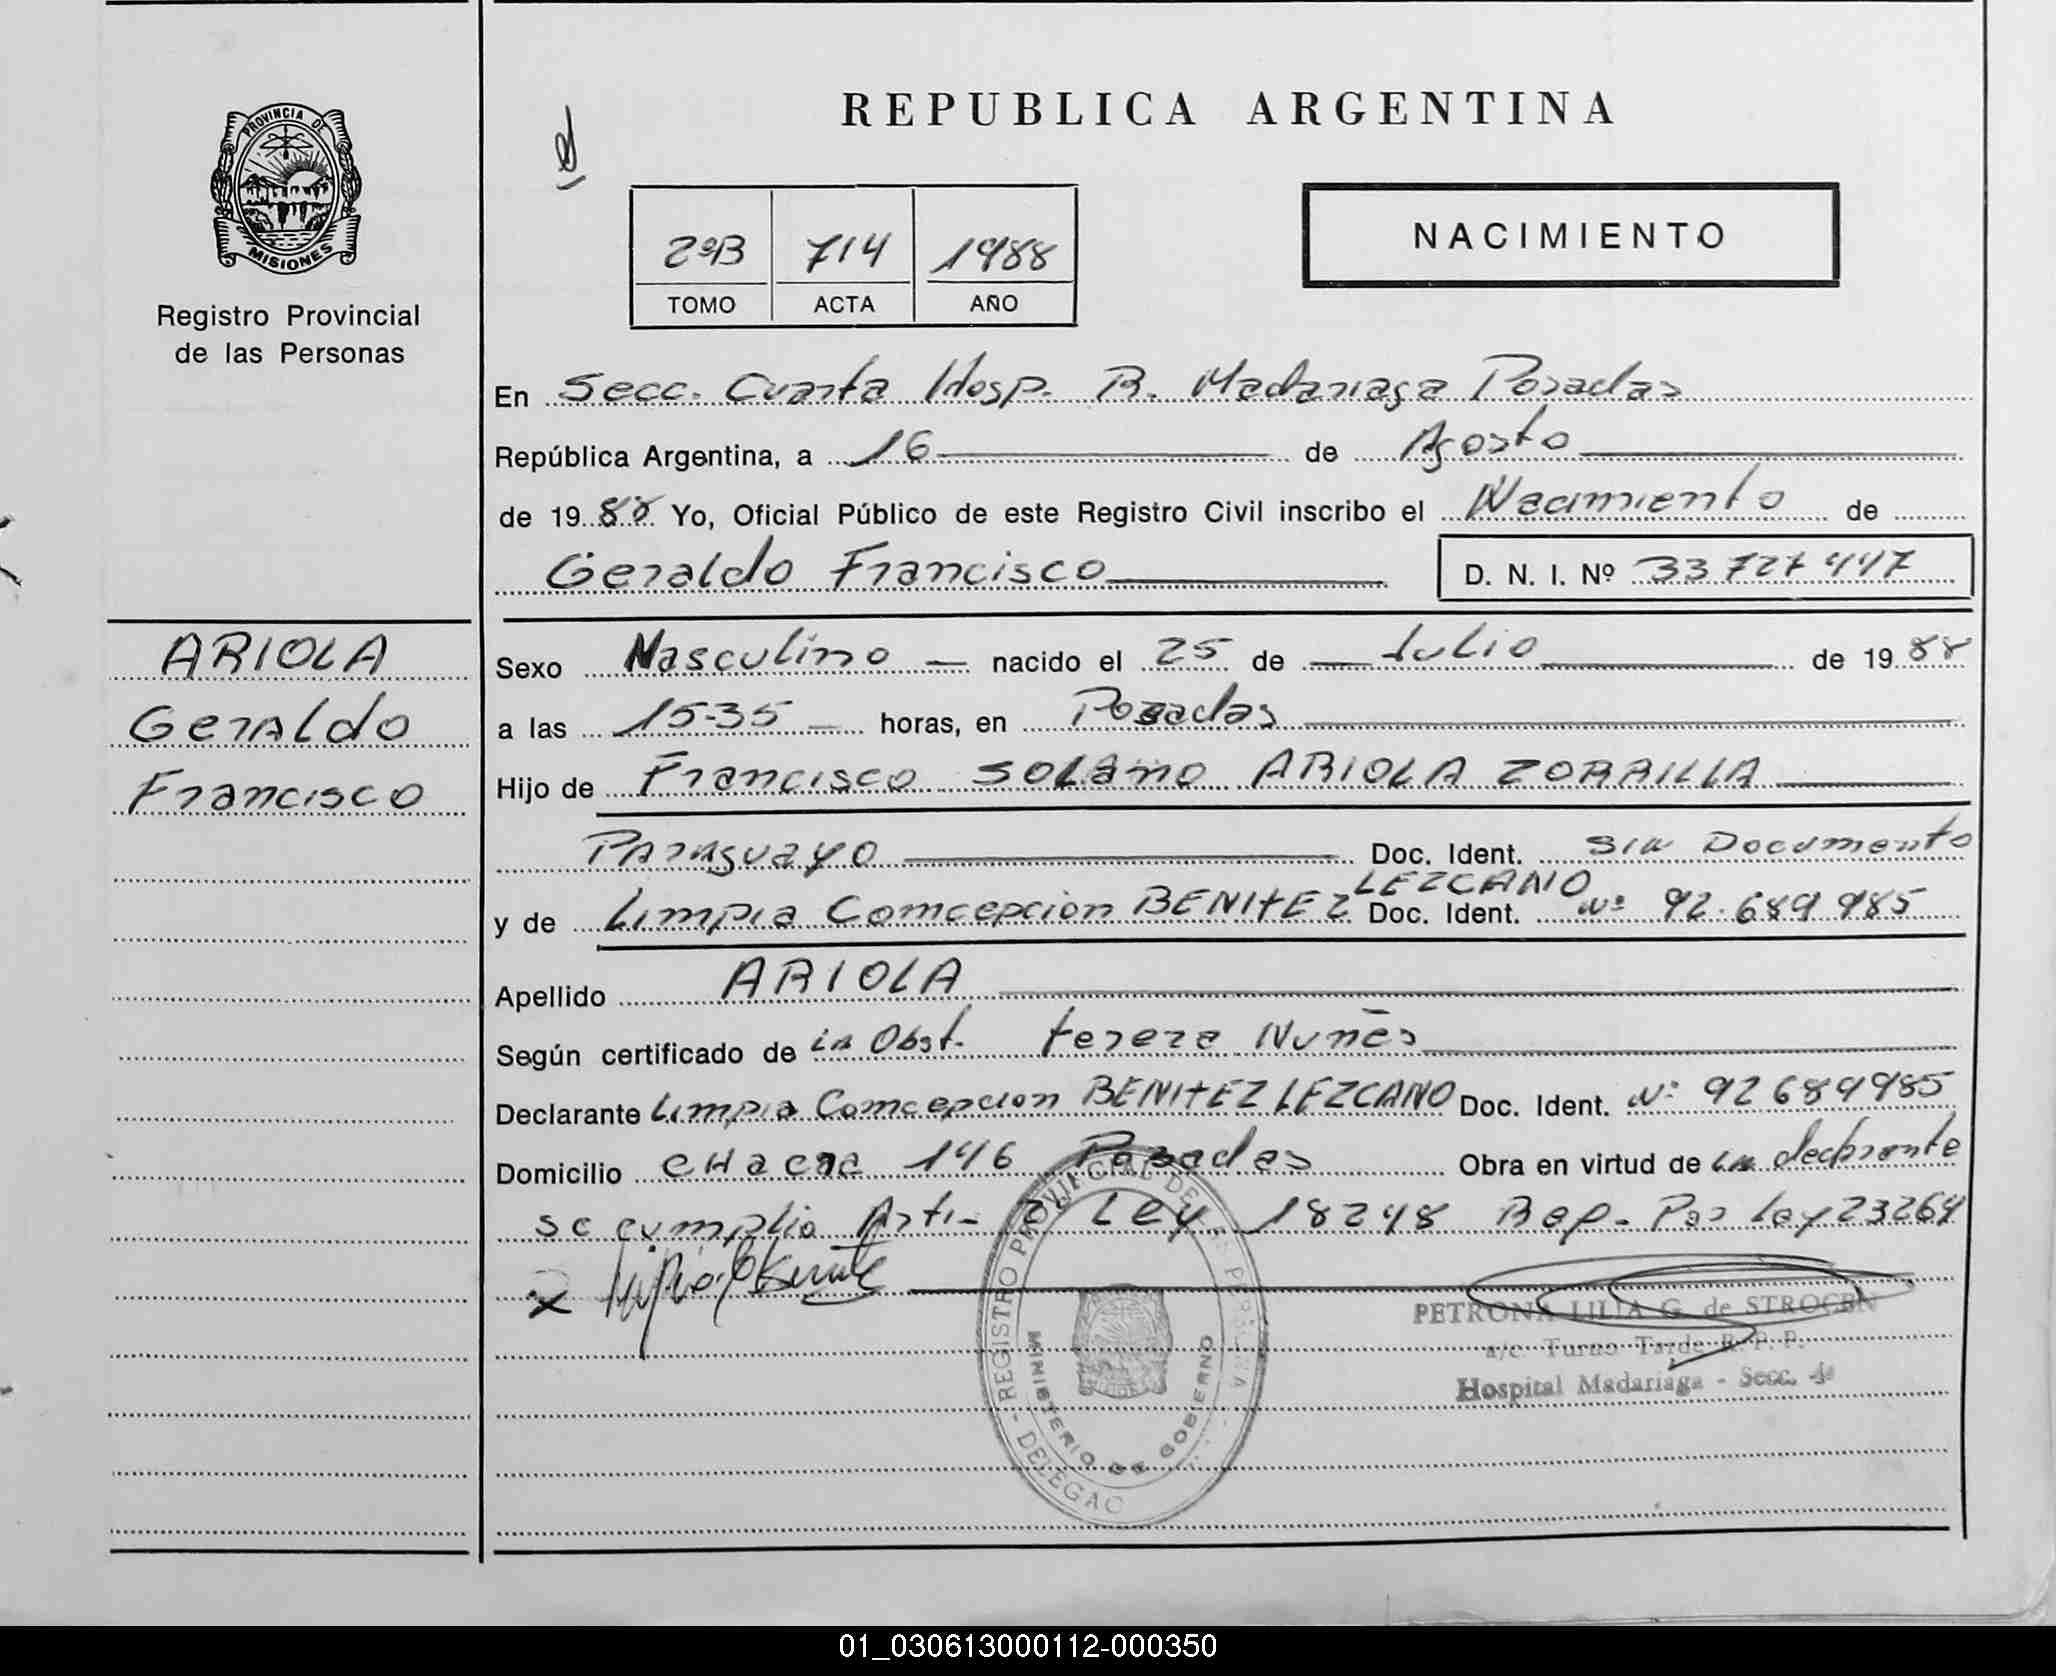 REPUBLICA ARGENTINA
PROVINCIA DE
MISIONES
Registro Provincial
de las Personas
2ºB 714 1988
TOMO ACTA AÑO
NACIMIENTO
En Secc. Cuarta Hosp. R. Madariaga Posadas
República Argentina, a 16 de Agosto
de 1988 Yo, Oficial Público de este Registro Civil inscribo el Nacimiento de
Geraldo Francisco D. N. I. Nº 33 727 447
ARIOLA
Geraldo
Francisco
Sexo Masculino nacido el 25 de Julio de 1988
a las 15-35 horas, en Posadas
Hijo de Francisco SOLano ARIOLA ZORRILLA
Paraguayo Doc. Ident. Sin Documento
y de Limpia Comcepcion BENITEZ LEZCANO Doc. Ident. Nº 92.689 985
Apellido ARIOLA
Según certificado de la Obst. teresa Nuñes
Declarante Limpia Comcepcion BENITEZ LEZCANO Doc. Ident. Nº 92 689985
Domicilio CHacra 146 Posadas Obra en virtud de la declarante
se cumplio Art- 2 Ley 18248 Rep. Por Ley 23264
x
PETRONA LILIA G. de STROCEN
a/c. Turno Tarde R. P. P.
Hospital Madariaga - Secc. 4ª
REGISTRO PROVINCIAL DE LAS PERSONAS
MINISTERIO DE GOBIERNO
01_030613000112-000350